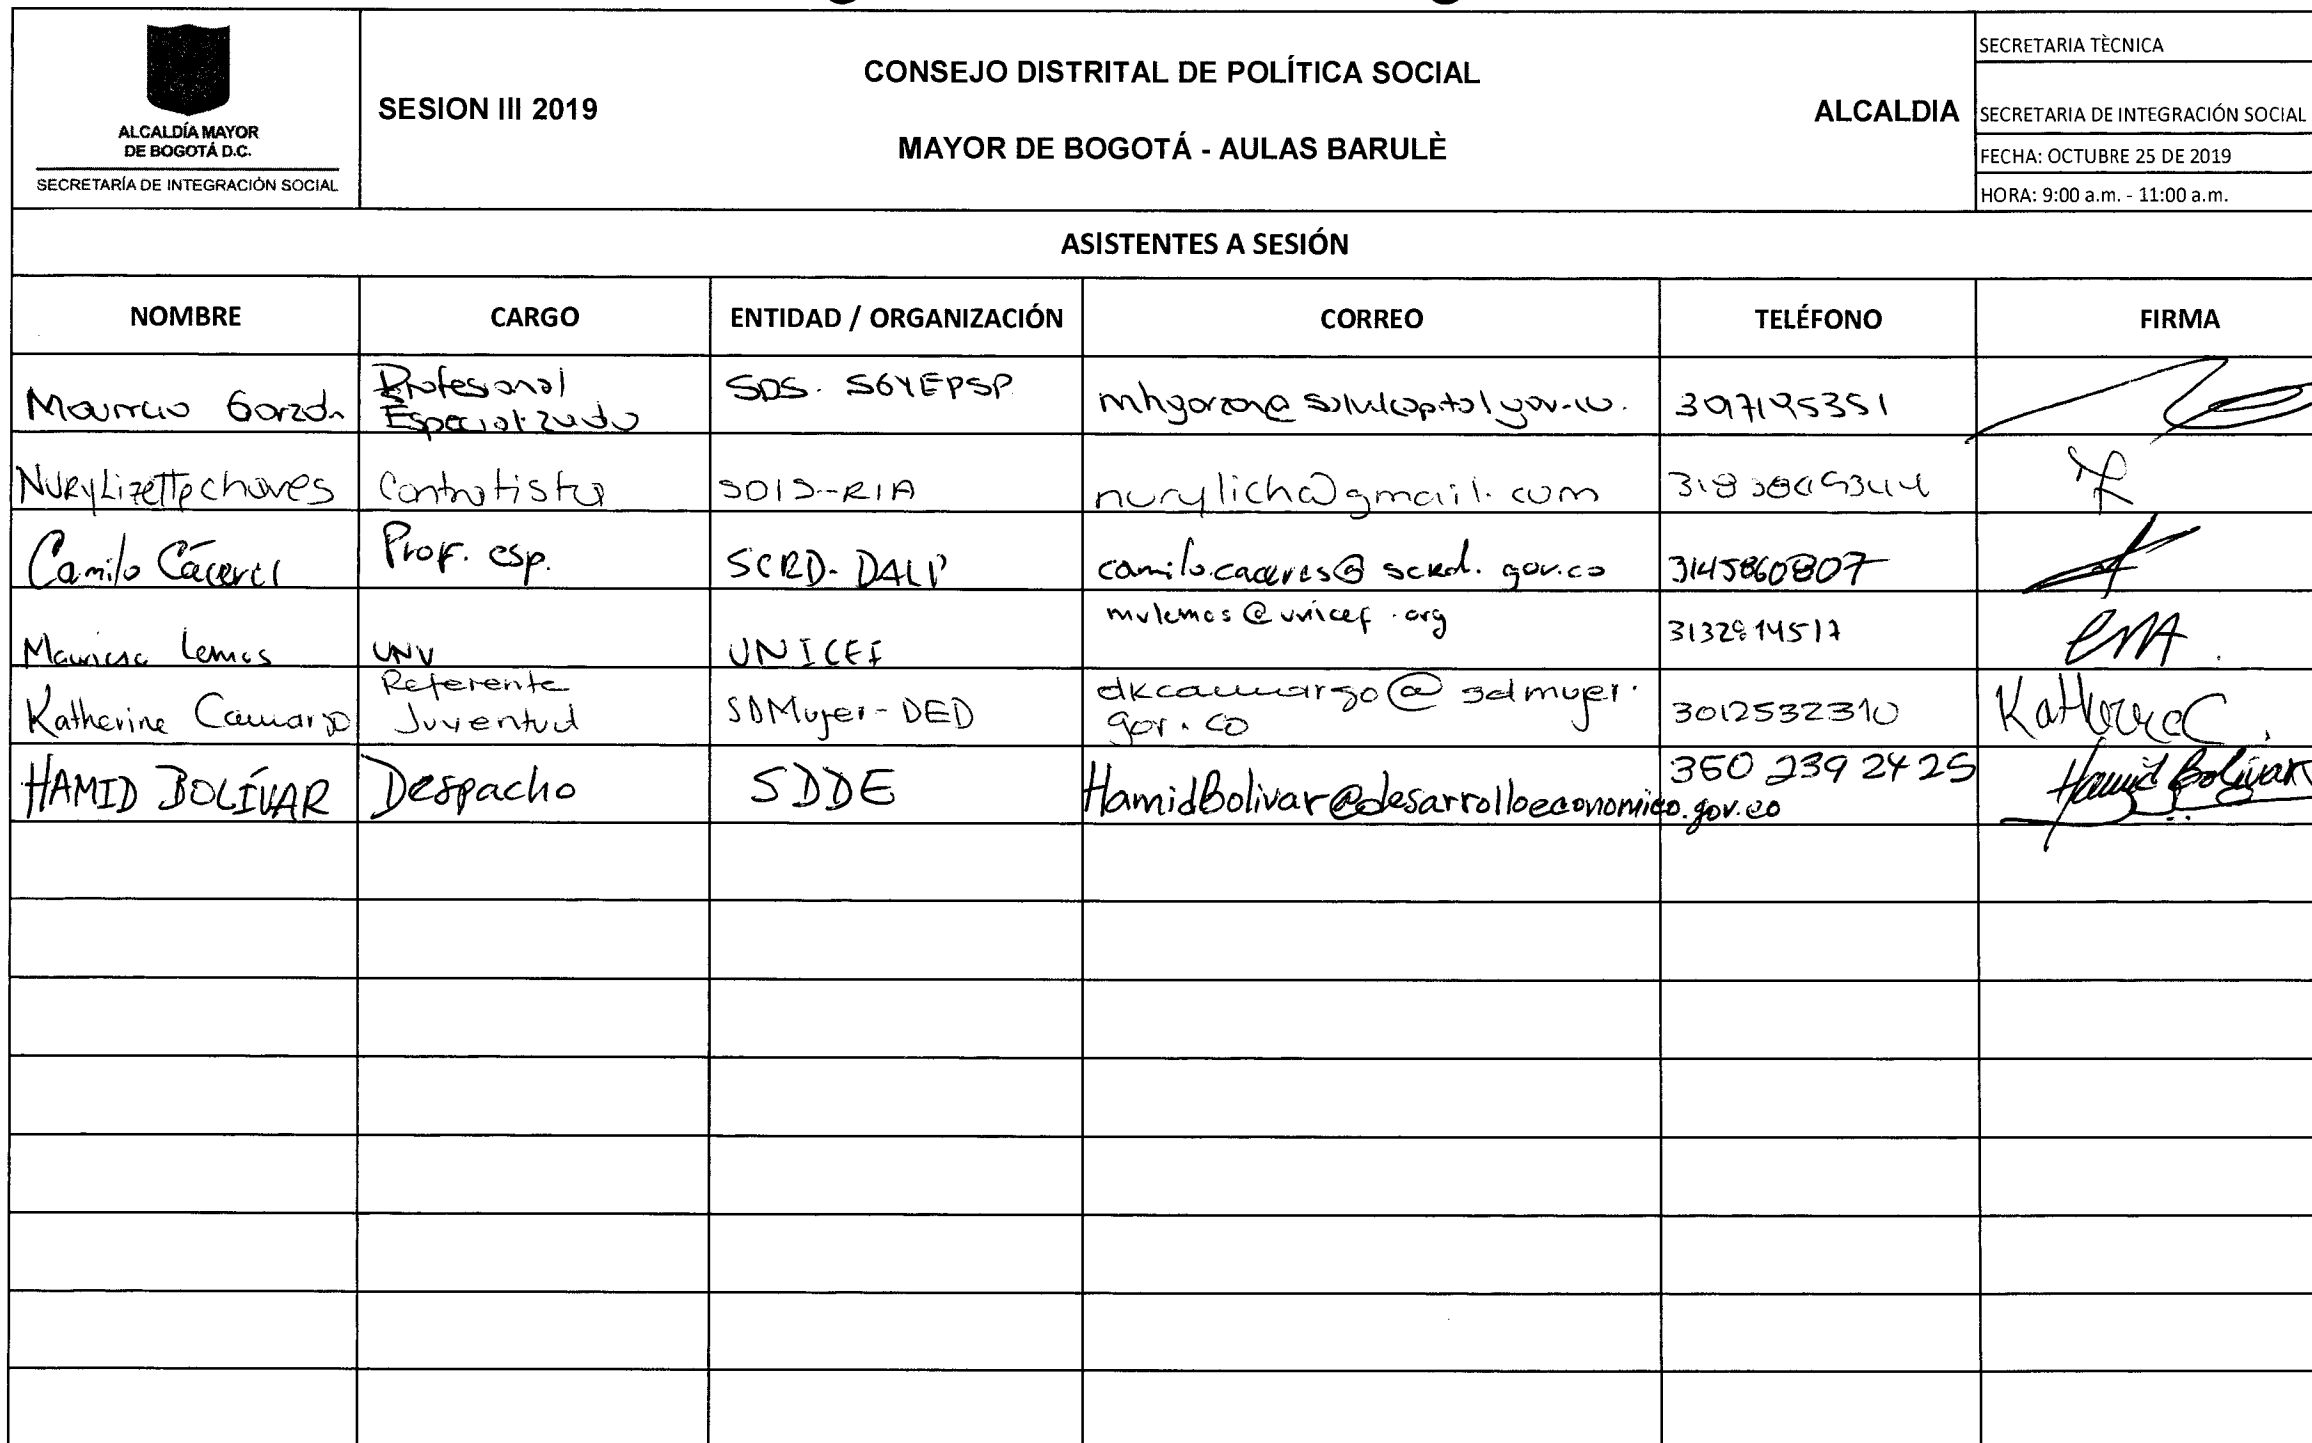 ALCALDÍA MAYOR
DE BOGOTÁ D.C.
SECRETARÍA DE INTEGRACIÓN SOCIAL
SESION III 2019
CONSEJO DISTRITAL DE POLÍTICA SOCIAL
ALCALDIA
MAYOR DE BOGOTÁ - AULAS BARULÈ
SECRETARIA TÈCNICA
SECRETARIA DE INTEGRACIÓN SOCIAL
FECHA: OCTUBRE 25 DE 2019
HORA: 9:00 a.m. - 11:00 a.m.
ASISTENTES A SESIÓN
NOMBRE CARGO ENTIDAD / ORGANIZACIÓN CORREO TELÉFONO FIRMA
Mauricio Garzón Profesional Especializado SDS.
NuryLizette chaves Contratista nurylich@gmail.com
Camilo Cáceres Prof. esp. SCRD- camilo.caceres@scrd.gov.co 3145860807
Lemos UNV UNICEF mvlemos@unicef.org
Katherine Camargo Referente Juventud SDMujer-DED dkcamargo@sdmujer.gov.co 3012532310 Katherine C.
HAMID BOLÍVAR Despacho SDDE HamidBolivar@desarrolloeconomico.gov.co 350 239 2425 Hamid Bolívar